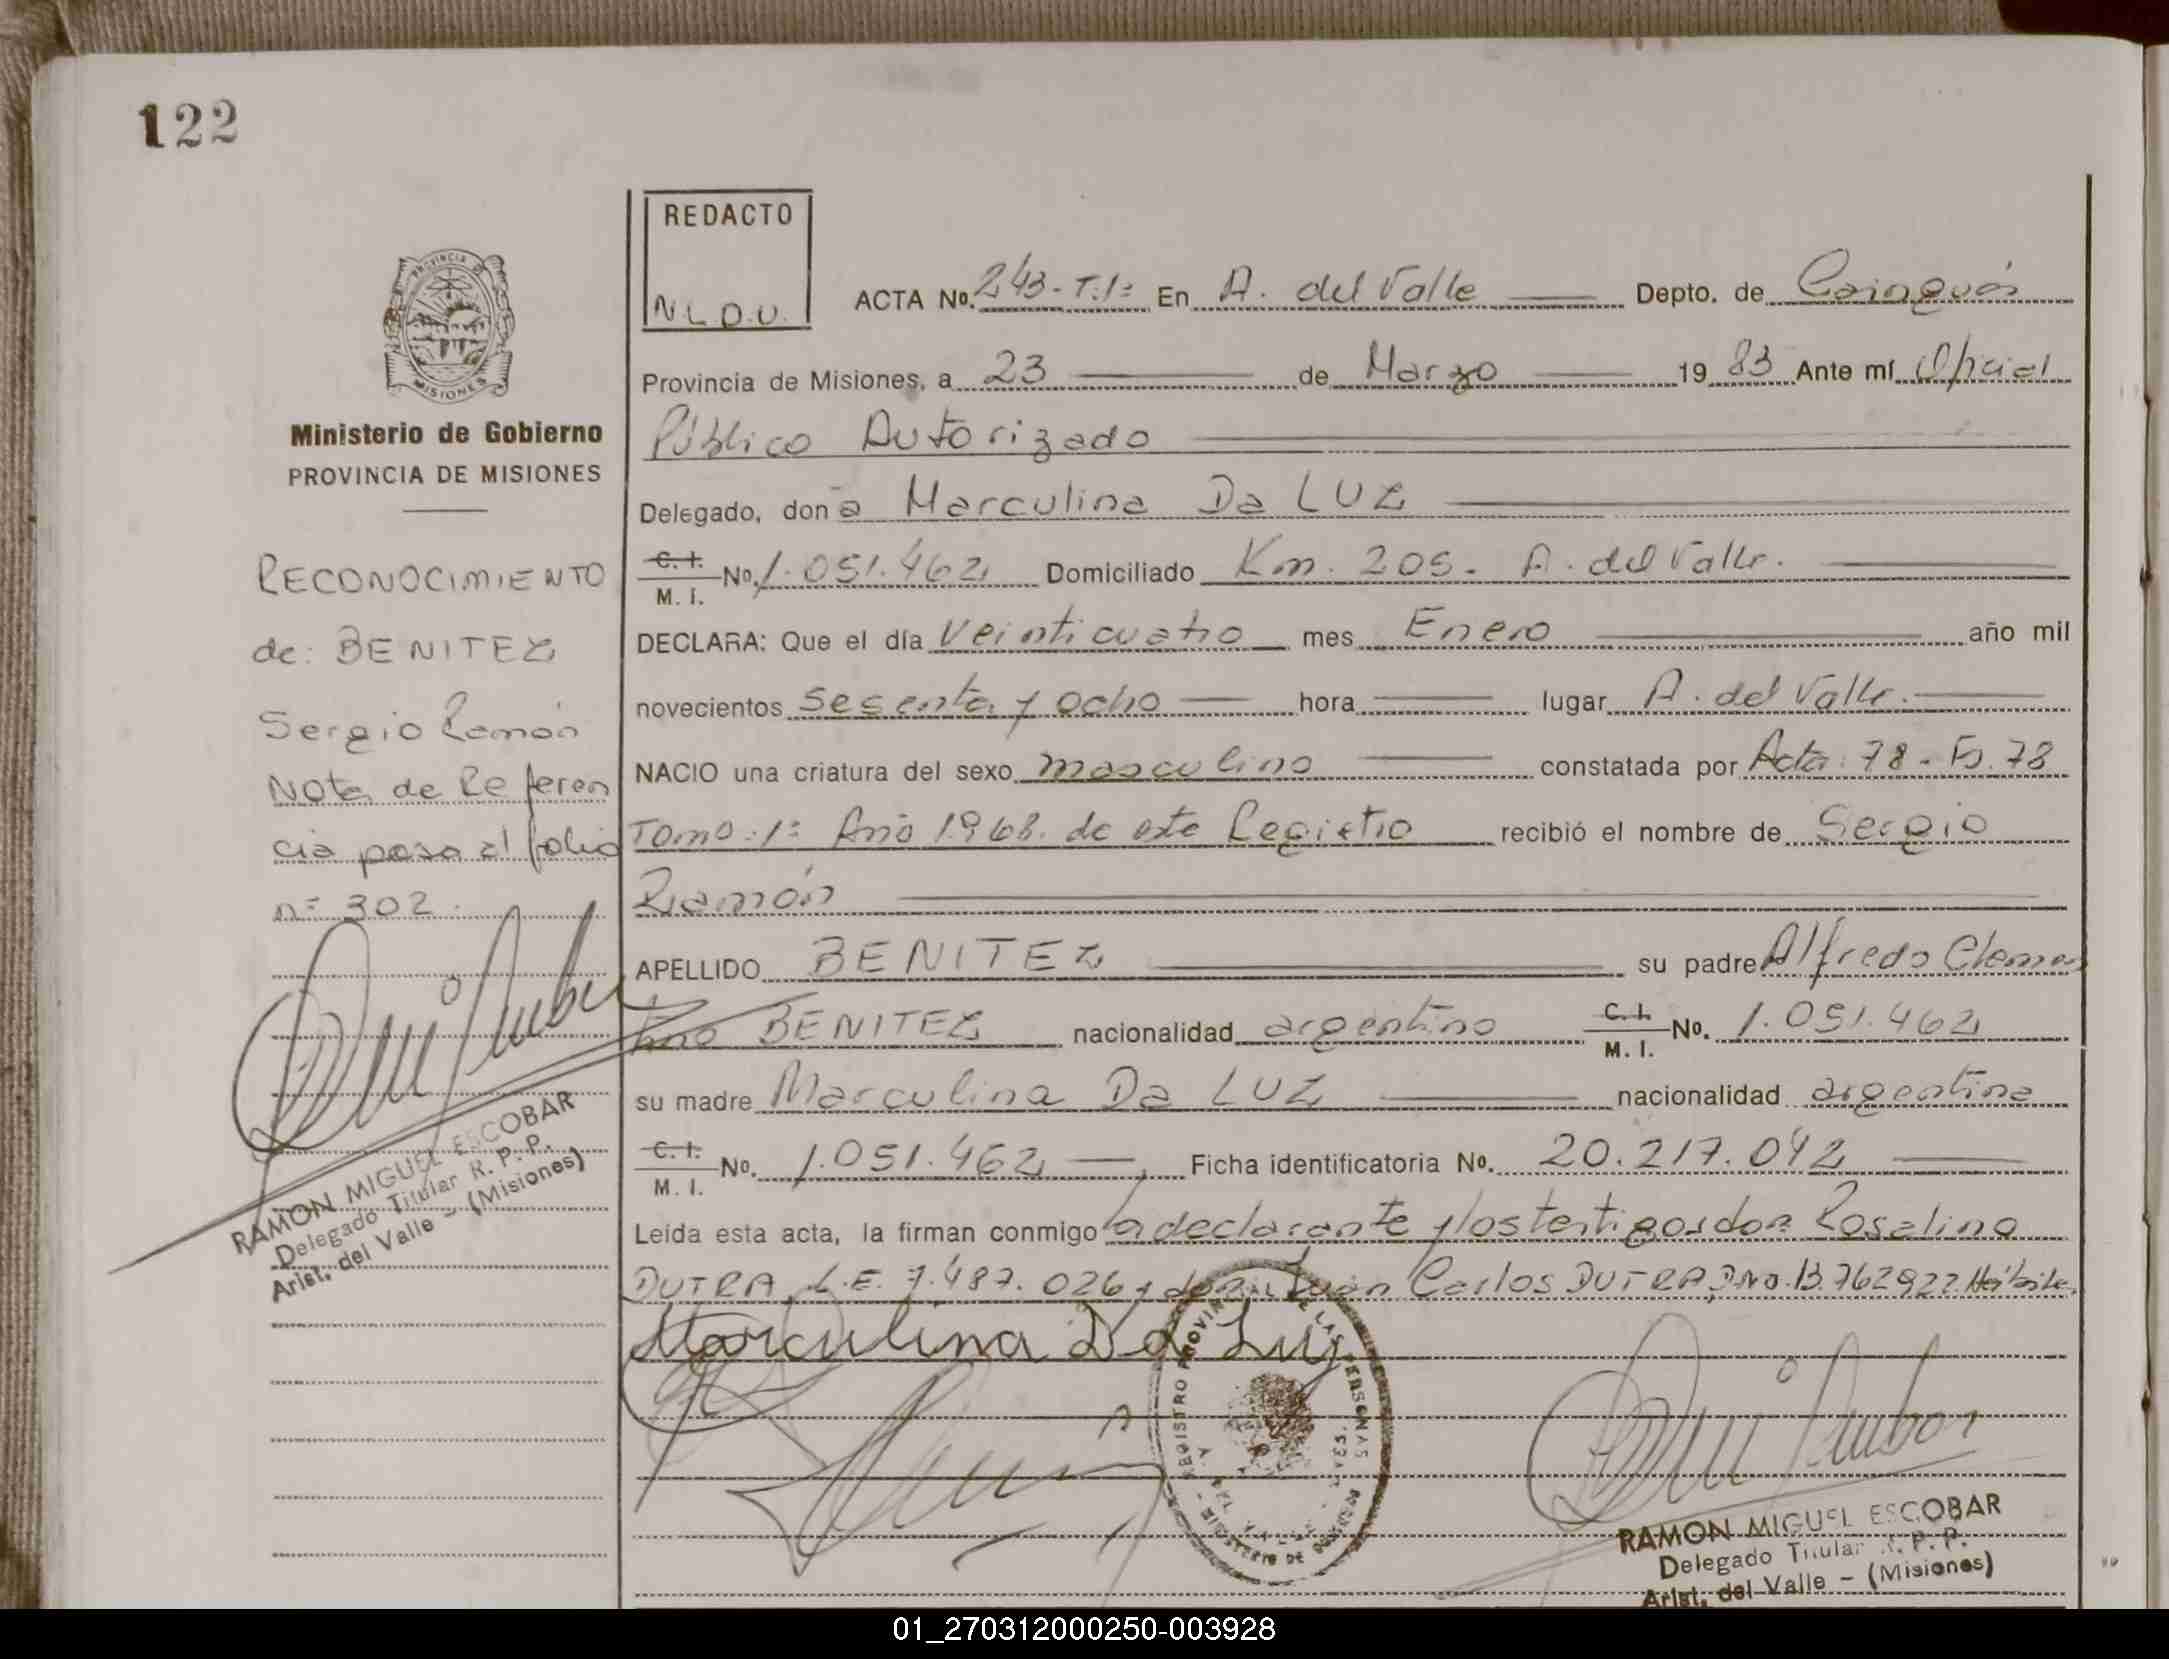 122
REDACTO
N L D.U.
ACTA No. 243-T.1º En A. del Valle Depto. de Cainguás
Provincia de Misiones, a 23 de Marzo 1983 Ante mí Oficial
Público Autorizado
Delegado, don a Marculina Da LUZ
C. I. M. I. No. 1.051.462 Domiciliado Km. 205. A. del Valle.
DECLARA: Que el día Veinticuatro mes Enero año mil
novecientos sesenta y ocho hora lugar A. del Valle.
NACIO una criatura del sexo masculino constatada por Acta: 78 - Fº. 78
Tomo: 1º Año 1968. de este Registro recibió el nombre de Sergio
Ramón
APELLIDO BENITEZ su padre Alfredo Clemen
tino BENITEZ nacionalidad argentino C. I. M. I. No. 1.051.462
su madre Marculina Da LUZ nacionalidad argentina
C. I. M. I. No. 1.051.462 Ficha identificatoria No. 20.217.042
Leída esta acta, la firman conmigo la declarante y los testigos don Rosalino
DUTRA L.E. 7.487.026 y don Juan Carlos DUTRA DNI. 13.762922
Marculina Da Luz
REGISTRO PROVINCIAL DE LAS PERSONAS
MINISTERIO DE GOBIERNO
RAMON MIGUEL ESCOBAR
Delegado Titular R. P. P.
Arist. del Valle - (Misiones)
PROVINCIA DE
MISIONES
Ministerio de Gobierno
PROVINCIA DE MISIONES
RECONOCIMIENTO
de: BENITEZ
Sergio Ramón
Nota de Referen
cia pasa al folio
nº 302.
RAMON MIGUEL ESCOBAR
Delegado Titular R. P. P.
Arist. del Valle - (Misiones)
01_270312000250-003928